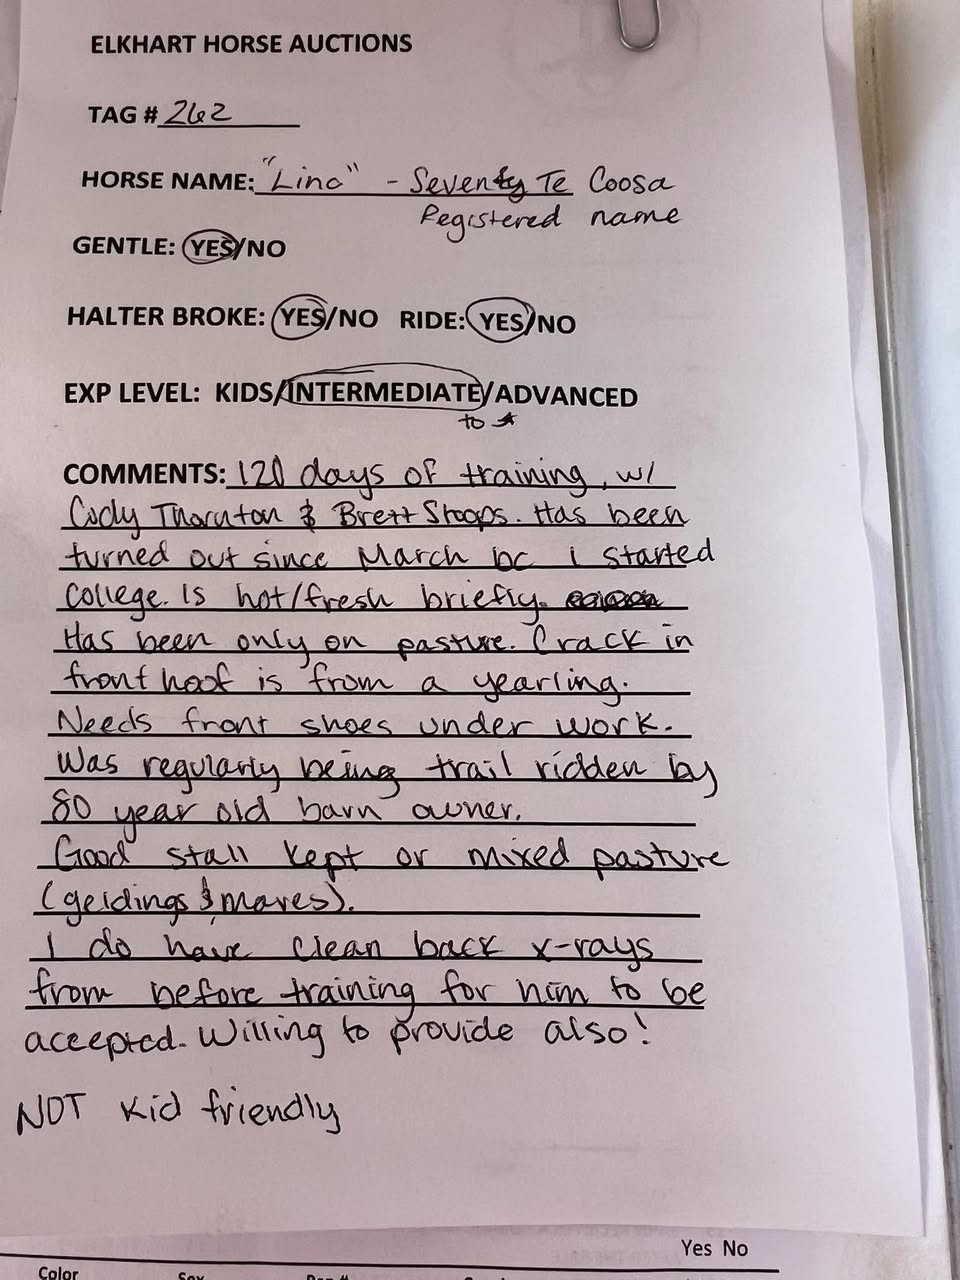 ELKHART HORSE AUCTIONS
TAG # 262
HORSE NAME: "Linc" - Seventy Te Coosa
Registered name
GENTLE: YES/NO
HALTER BROKE: YES/NO RIDE: YES/NO
EXP LEVEL: KIDS/INTERMEDIATE/ADVANCED
to
COMMENTS: 120 days of training, w/
Cody Thornton & Brett Stoops. Has been
turned out since March bc i started
college. Is hot/fresh briefly.
Has been only on pasture. Crack in
front hoof is from a yearling.
Needs front shoes under work.
Was regularly being trail ridden by
80 year old barn owner.
Good stall kept or mixed pasture
(geldings & mares).
I do have clean back x-rays
from before training for him to be
accepted. Willing to provide also!
NOT kid friendly
Yes No
Color